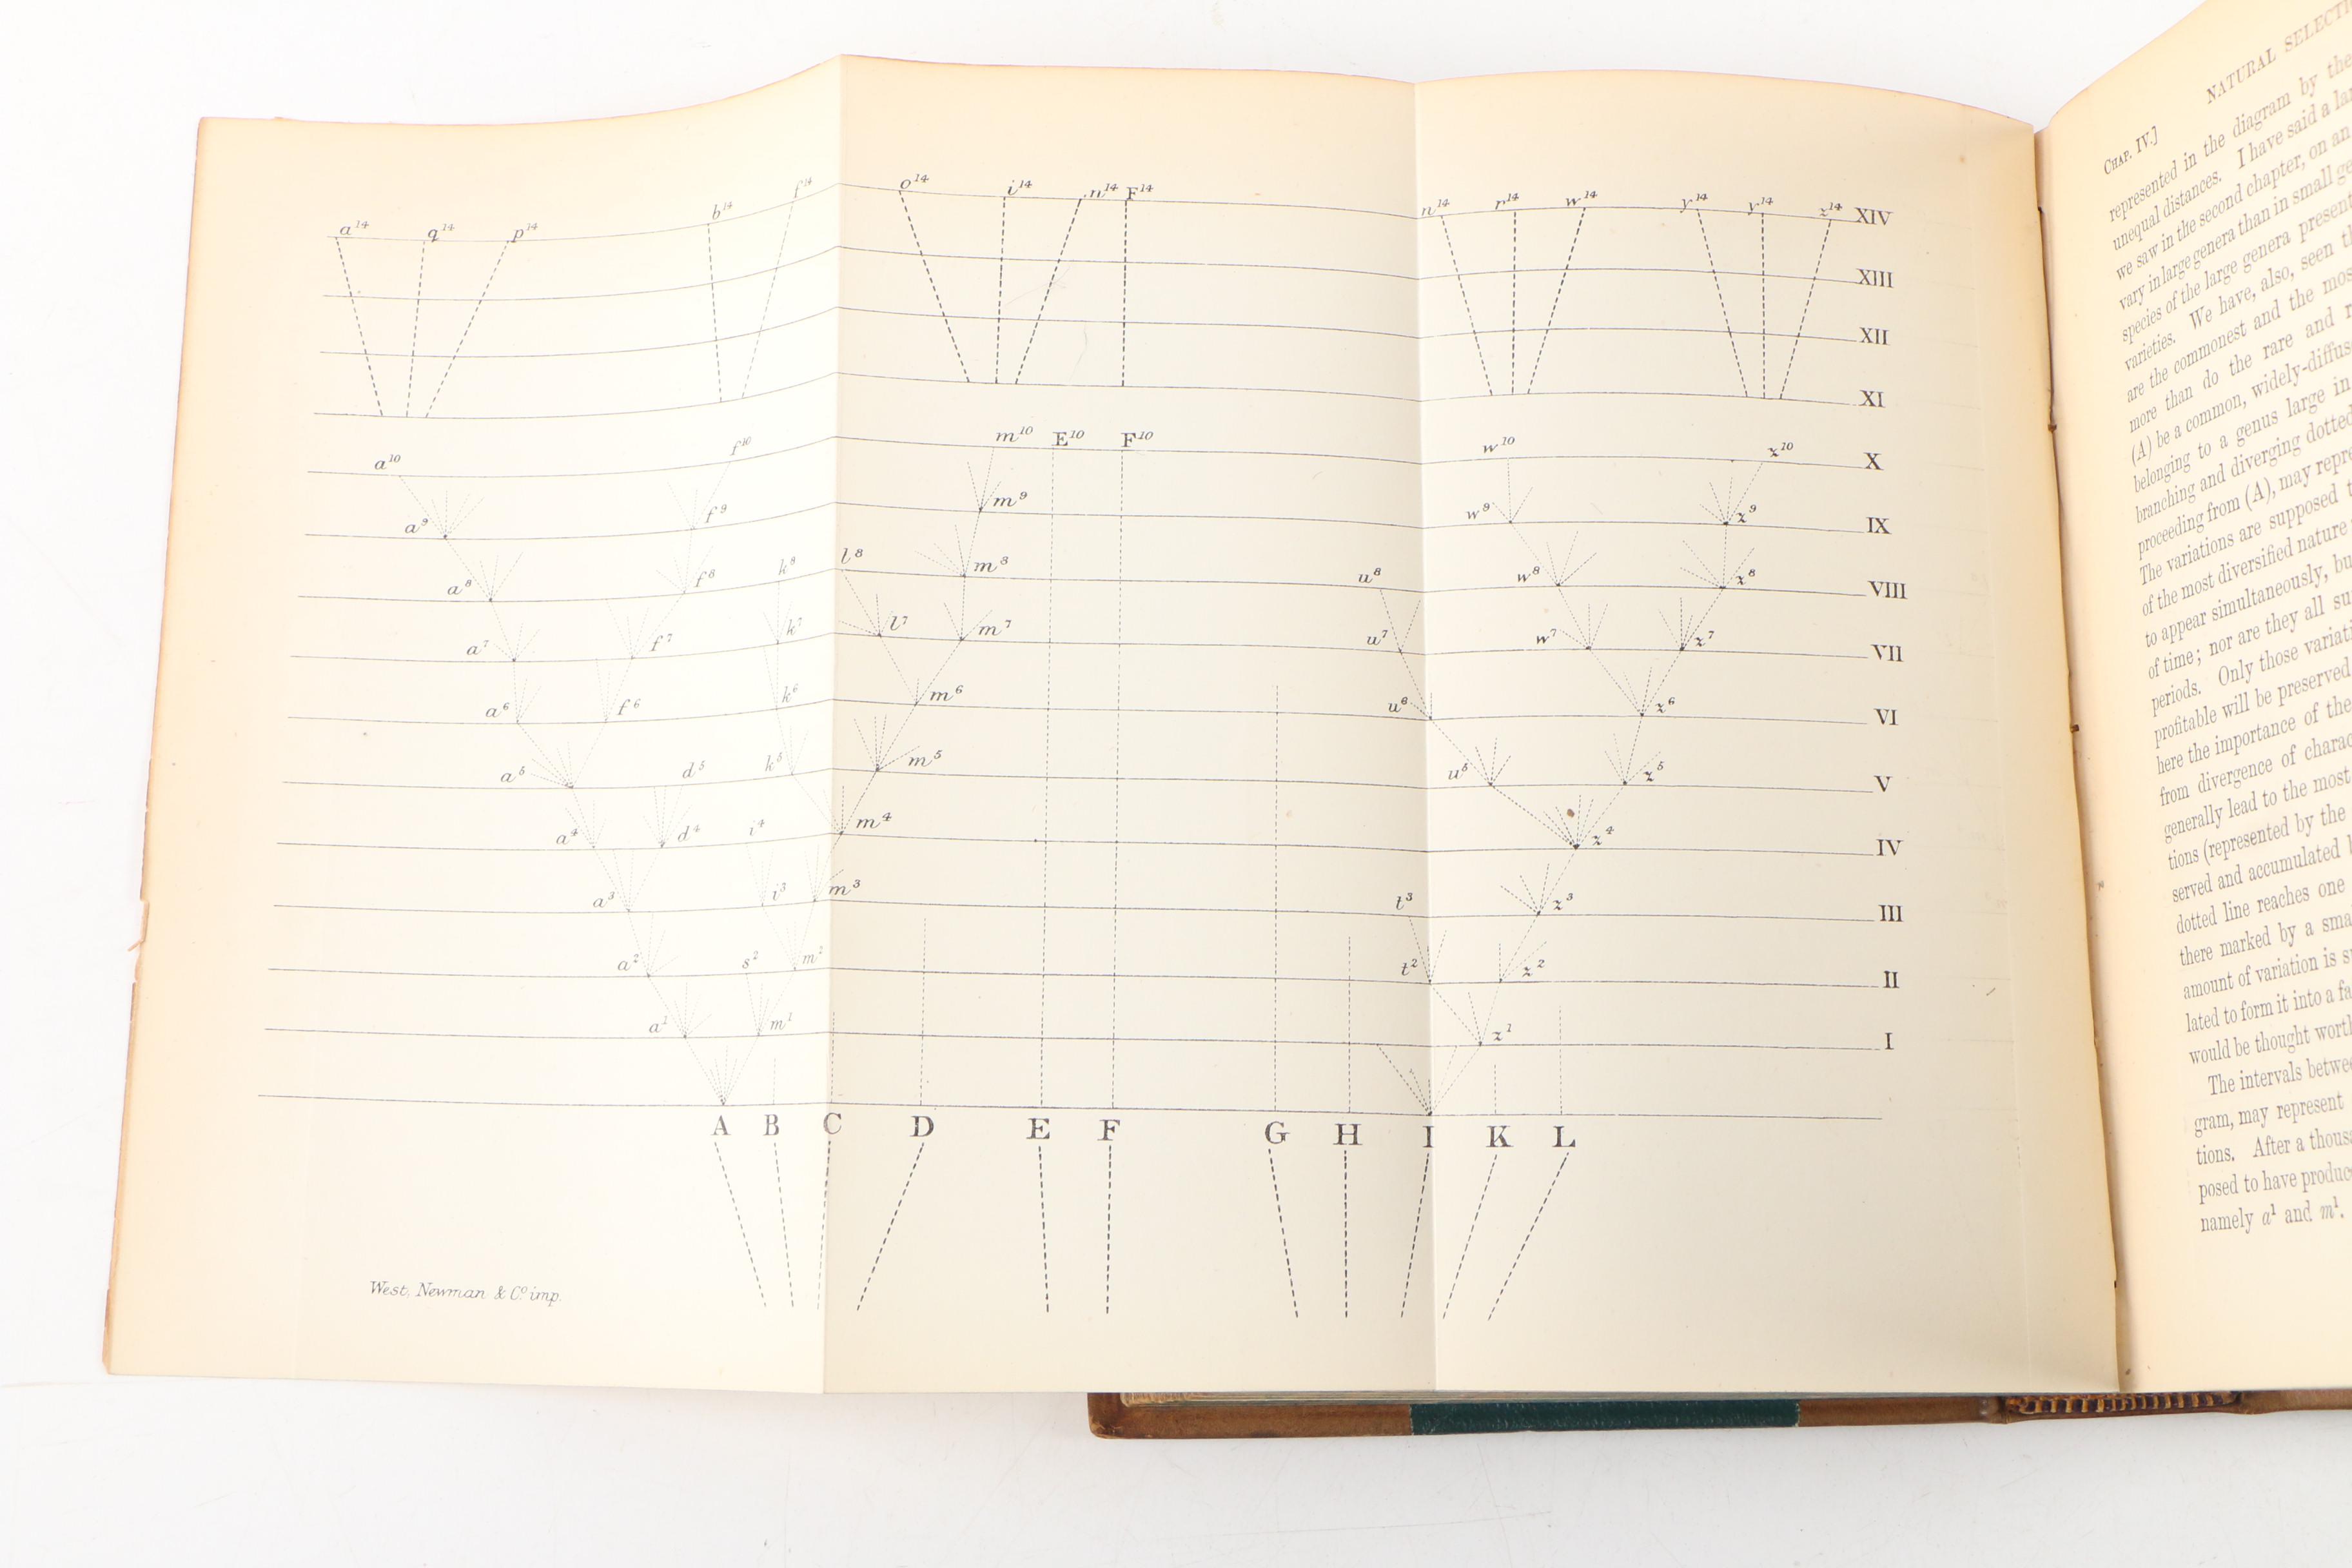 a14 q14 p14 b14 f14 o14 i14 m14 F14 n14 r14 w14 y14 v14 z14 XIV
XIII
XII
XI
a10 f10 m10 E10 F10 w10 z10 X
a9 f9 m9 w9 z9 IX
a8 f8 k8 l8 m8 u8 w8 z8 VIII
a7 f7 k7 l7 m7 u7 w7 z7 VII
a6 f6 k6 m6 u6 z6 VI
a5 d5 k5 m5 u5 z5 V
a4 d4 i4 m4 z4 IV
a3 i3 m3 t3 z3 III
a2 s2 m2 t2 z2 II
a1 m1 z1 I
A B C D E F G H I K L
West, Newman & Co. imp.
CHAP. IV.] NATURAL
represented in the diagram by the
unequal distances. I have said a
we saw in the second chapter, on an
vary in large genera than in small
species of the large genera present
varieties. We have, also, seen
are the commonest and the
more than do the rare and
(A) be a common,
belonging to a genus large in
branching and diverging dotted
proceeding from (A), may
The variations are supposed
of the most diversified nature
to appear simultaneously,
of time; nor are they all
periods. Only those
profitable will be preserved
here the importance of the
from divergence of
generally lead to the most
tions (represented by the
served and accumulated
dotted line reaches one
there marked by a
amount of variation is
lated to form it into a
would be thought
The intervals
gram, may represent
tions. After a
posed to have
namely a1 and m1.